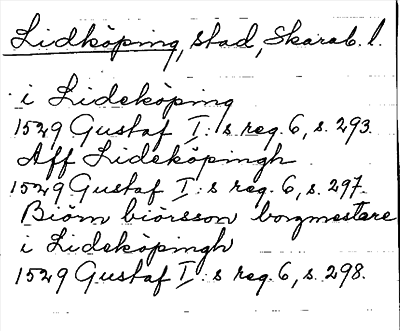 Lidköping, stad, Skarab. l.
i Lideköping
1529 Gustaf I:s reg. 6, s. 293.
Aff Lideköpingh
1529 Gustaf I:s reg. 6, s. 297.
Biörn biörsson borgmestare
i Lideköpingh
1529 Gustaf I:s reg. 6, s. 298.